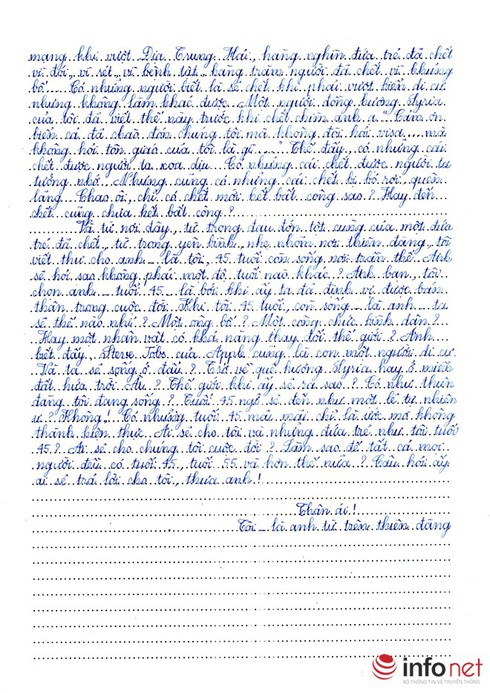 mạng khi vượt Địa Trung Hải, hàng nghìn đứa trẻ đã chết
vì đói, vì rét, vì bệnh tật... hàng trăm người đã chết vì khủng
bố... Có những người biết là sẽ chết khi phải vượt biển di cư
nhưng không làm khác được. Một người đồng hương Syria
của tôi đã viết thế này trước khi chết chìm anh ạ "Cảm ơn
biển cả đã chào đón chúng tôi mà không đòi hỏi visa... mà
không hỏi tôn giáo của tôi là gì...". Thế đấy, có những cái
chết được người ta xoa dịu... Có những cái chết được người ta
tưởng nhớ... Nhưng cũng có những cái chết bị bỏ rơi, quên
lãng... Than ôi, chỉ có chết mới hết bất công sao? Hay đến
chết cũng chưa hết bất công?
Và từ nơi đây, từ trong đau đớn tột cùng của một đứa
trẻ đã chết, từ trong yên bình, nhẹ nhõm nơi thiên đàng, tôi
viết thư cho anh - là tôi, 45 tuổi còn sống nơi trần thế. Anh
sẽ hỏi sao không phải một độ tuổi nào khác? Anh bạn, tôi
chọn anh - tuổi 45 là bởi khi ấy ta đã định vị được bản
thân trong cuộc đời. Khi tôi 45 tuổi, còn sống - là anh - ta
sẽ thế nào nhỉ? Một ông bố? Một công chức bình dân?
Hay một nhân vật có khả năng thay đổi thế giới? Anh
biết đấy, Steve Jobs của Apple cũng là con một người di cư.
Và ta sẽ sống ở đâu? Trở về quê hương Syria hay ở miền
đất hứa trời Âu? Thế giới khi ấy sẽ ra sao? Có như thiên
đàng tôi đang sống? Tuổi 45 ngỡ sẽ đến như một lẽ tự nhiên
ư? Không! Có những tuổi 45 mãi mãi chỉ là ước mơ không
thành hiện thực. Ai sẽ cho tôi và những đứa trẻ như tôi tuổi
45? Ai sẽ cho chúng tôi cuộc đời? Làm sao để tất cả mọi
người đều có tuổi 45, tuổi 55 và hơn thế nữa? Câu hỏi ấy
ai sẽ trả lời cho tôi, thưa anh!
Thân ái!
Tôi - là anh từ trên thiên đàng
infonet
BỘ THÔNG TIN VÀ TRUYỀN THÔNG